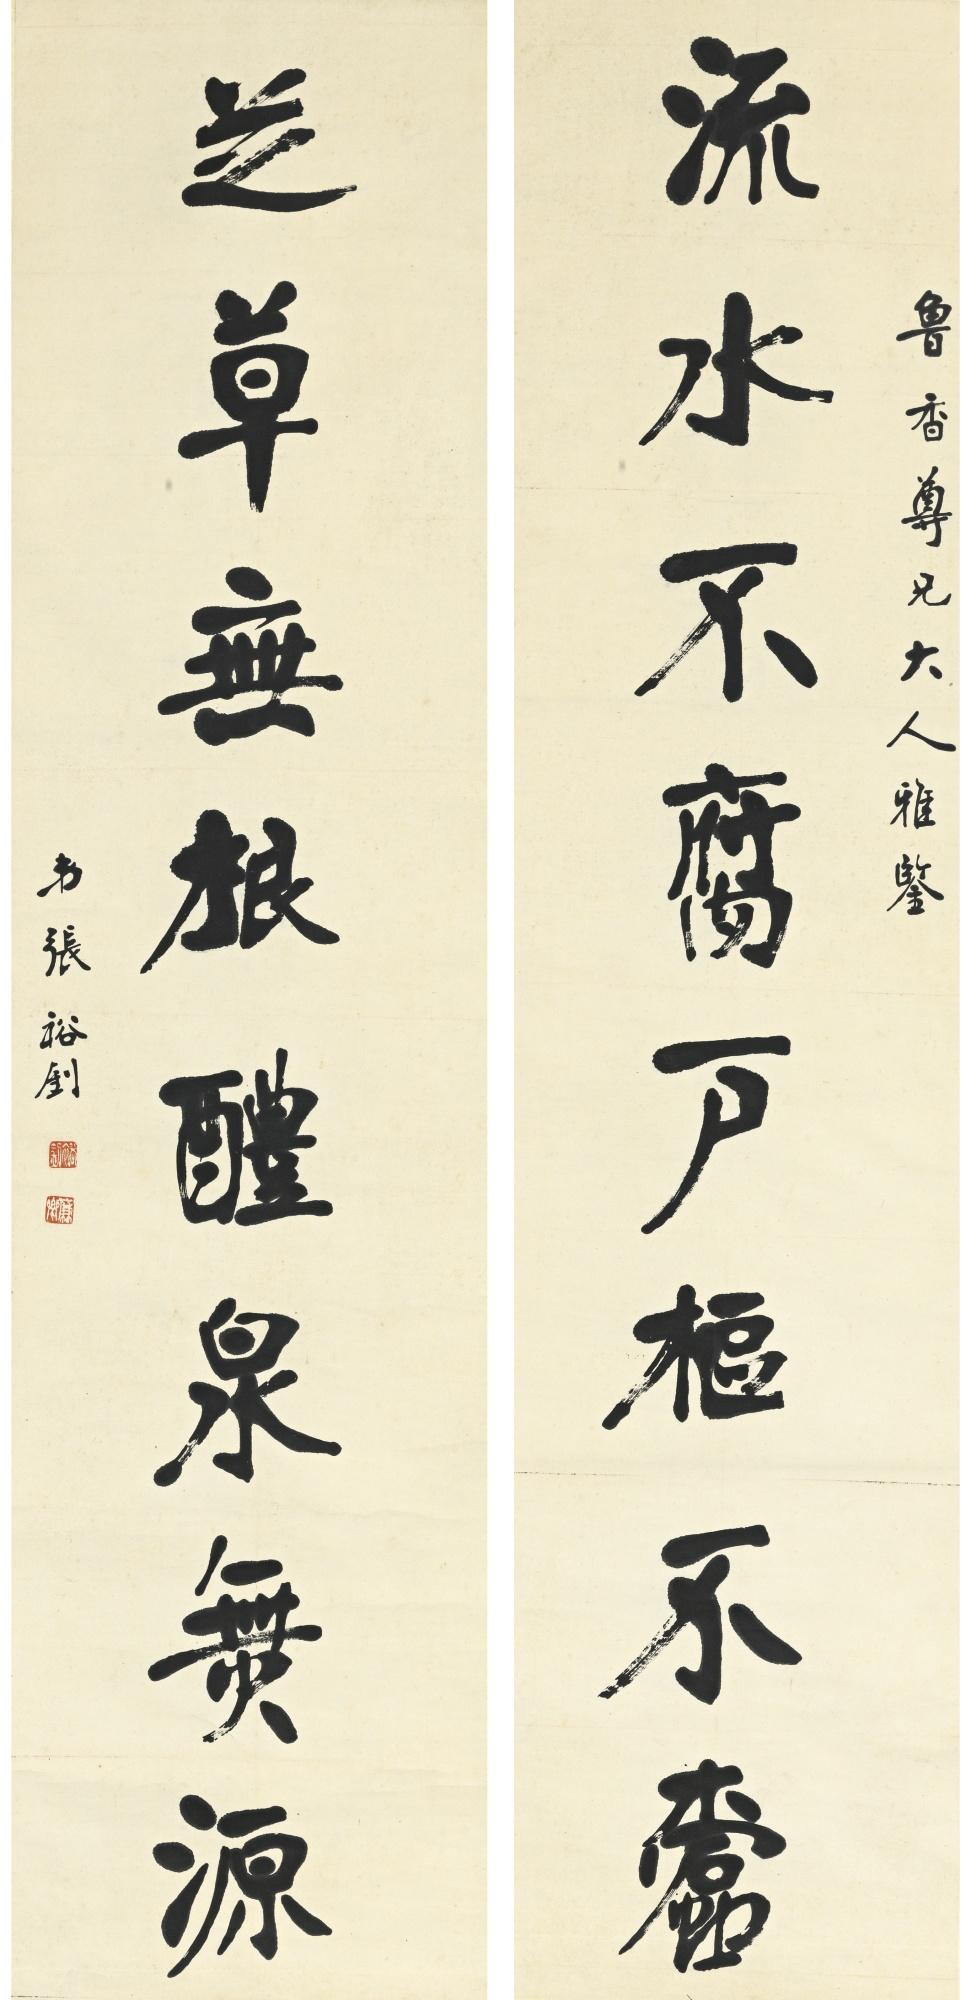 魯香尊兄大人雅鑒
流水不腐戶樞不蠹
芝草無根醴泉無源
弟張裕釗